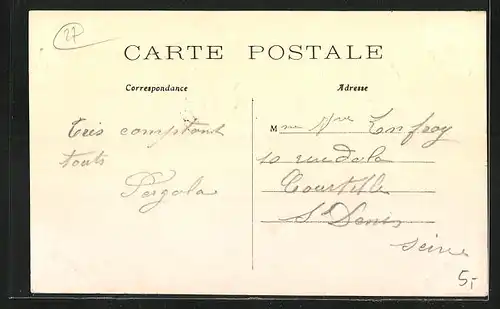 27
CARTE POSTALE
Correspondance
Adresse
très comptant
touts
Pergola
Mme Vve Enfroy
10 rue de la
Courtille
St Denis
Seine
5,-